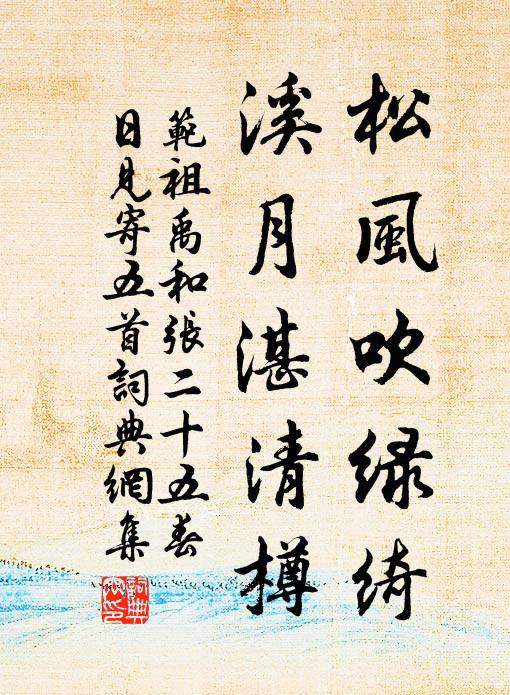 松風吹緑綺
溪月湛清樽
範祖禹和張二十五春
日見寄五首詞典網集